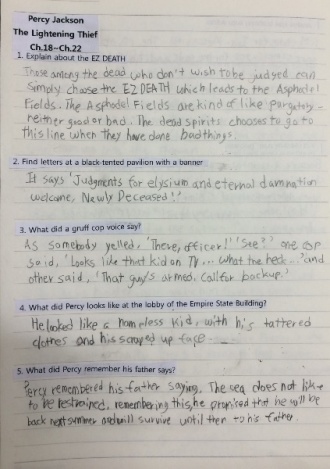 Percy Jackson
The Lightening Thief
Ch.18~Ch.22
1. Explain about the EZ DEATH
Those among the dead who don't wish to be judged can
simply choose the EZ DEATH which leads to the Asphodel
Fields. The Asphodel Fields are kind of like purgatory-
neither good or bad. The dead spirits chooses to go to
this line when they have done bad things.
2. Find letters at a black-tented pavilion with a banner
It says 'Judgments for elysium and eternal damnation
welcome, Newly Deceased!'
3. What did a gruff cop voice say?
As somebody yelled, 'There, officer!' 'See?' one cop
said, 'Looks like that kid on TV... what the heck...' and
other said, 'That guy's armed. Call for backup.'
4. What did Percy looks like at the lobby of the Empire State Building?
He looked like a homeless kid, with his tattered
clothes and his scraped up face.
5. What did Percy remember his father says?
Percy remembered his father saying, The sea does not like
to be restrained, remembering this, he promised that he will be
back next summer and will survive until then to his father.